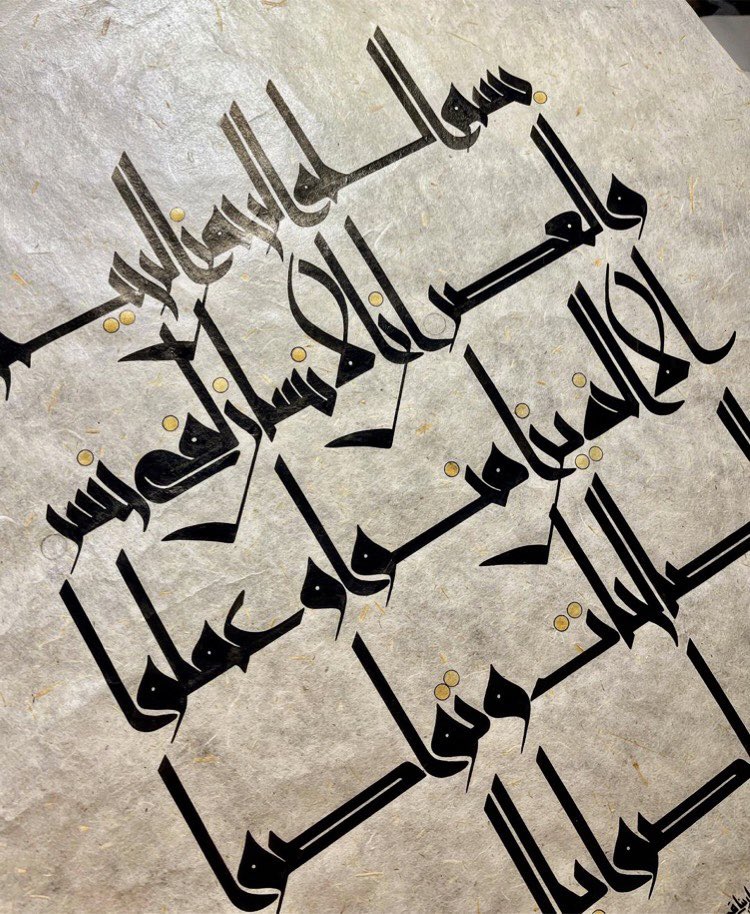 بسم الله الرحمن الرحيم
والعصر ان الانسان لفى خسر
الا الذين امنوا وعملوا
الصالحات وتواصوا
اصوا بال